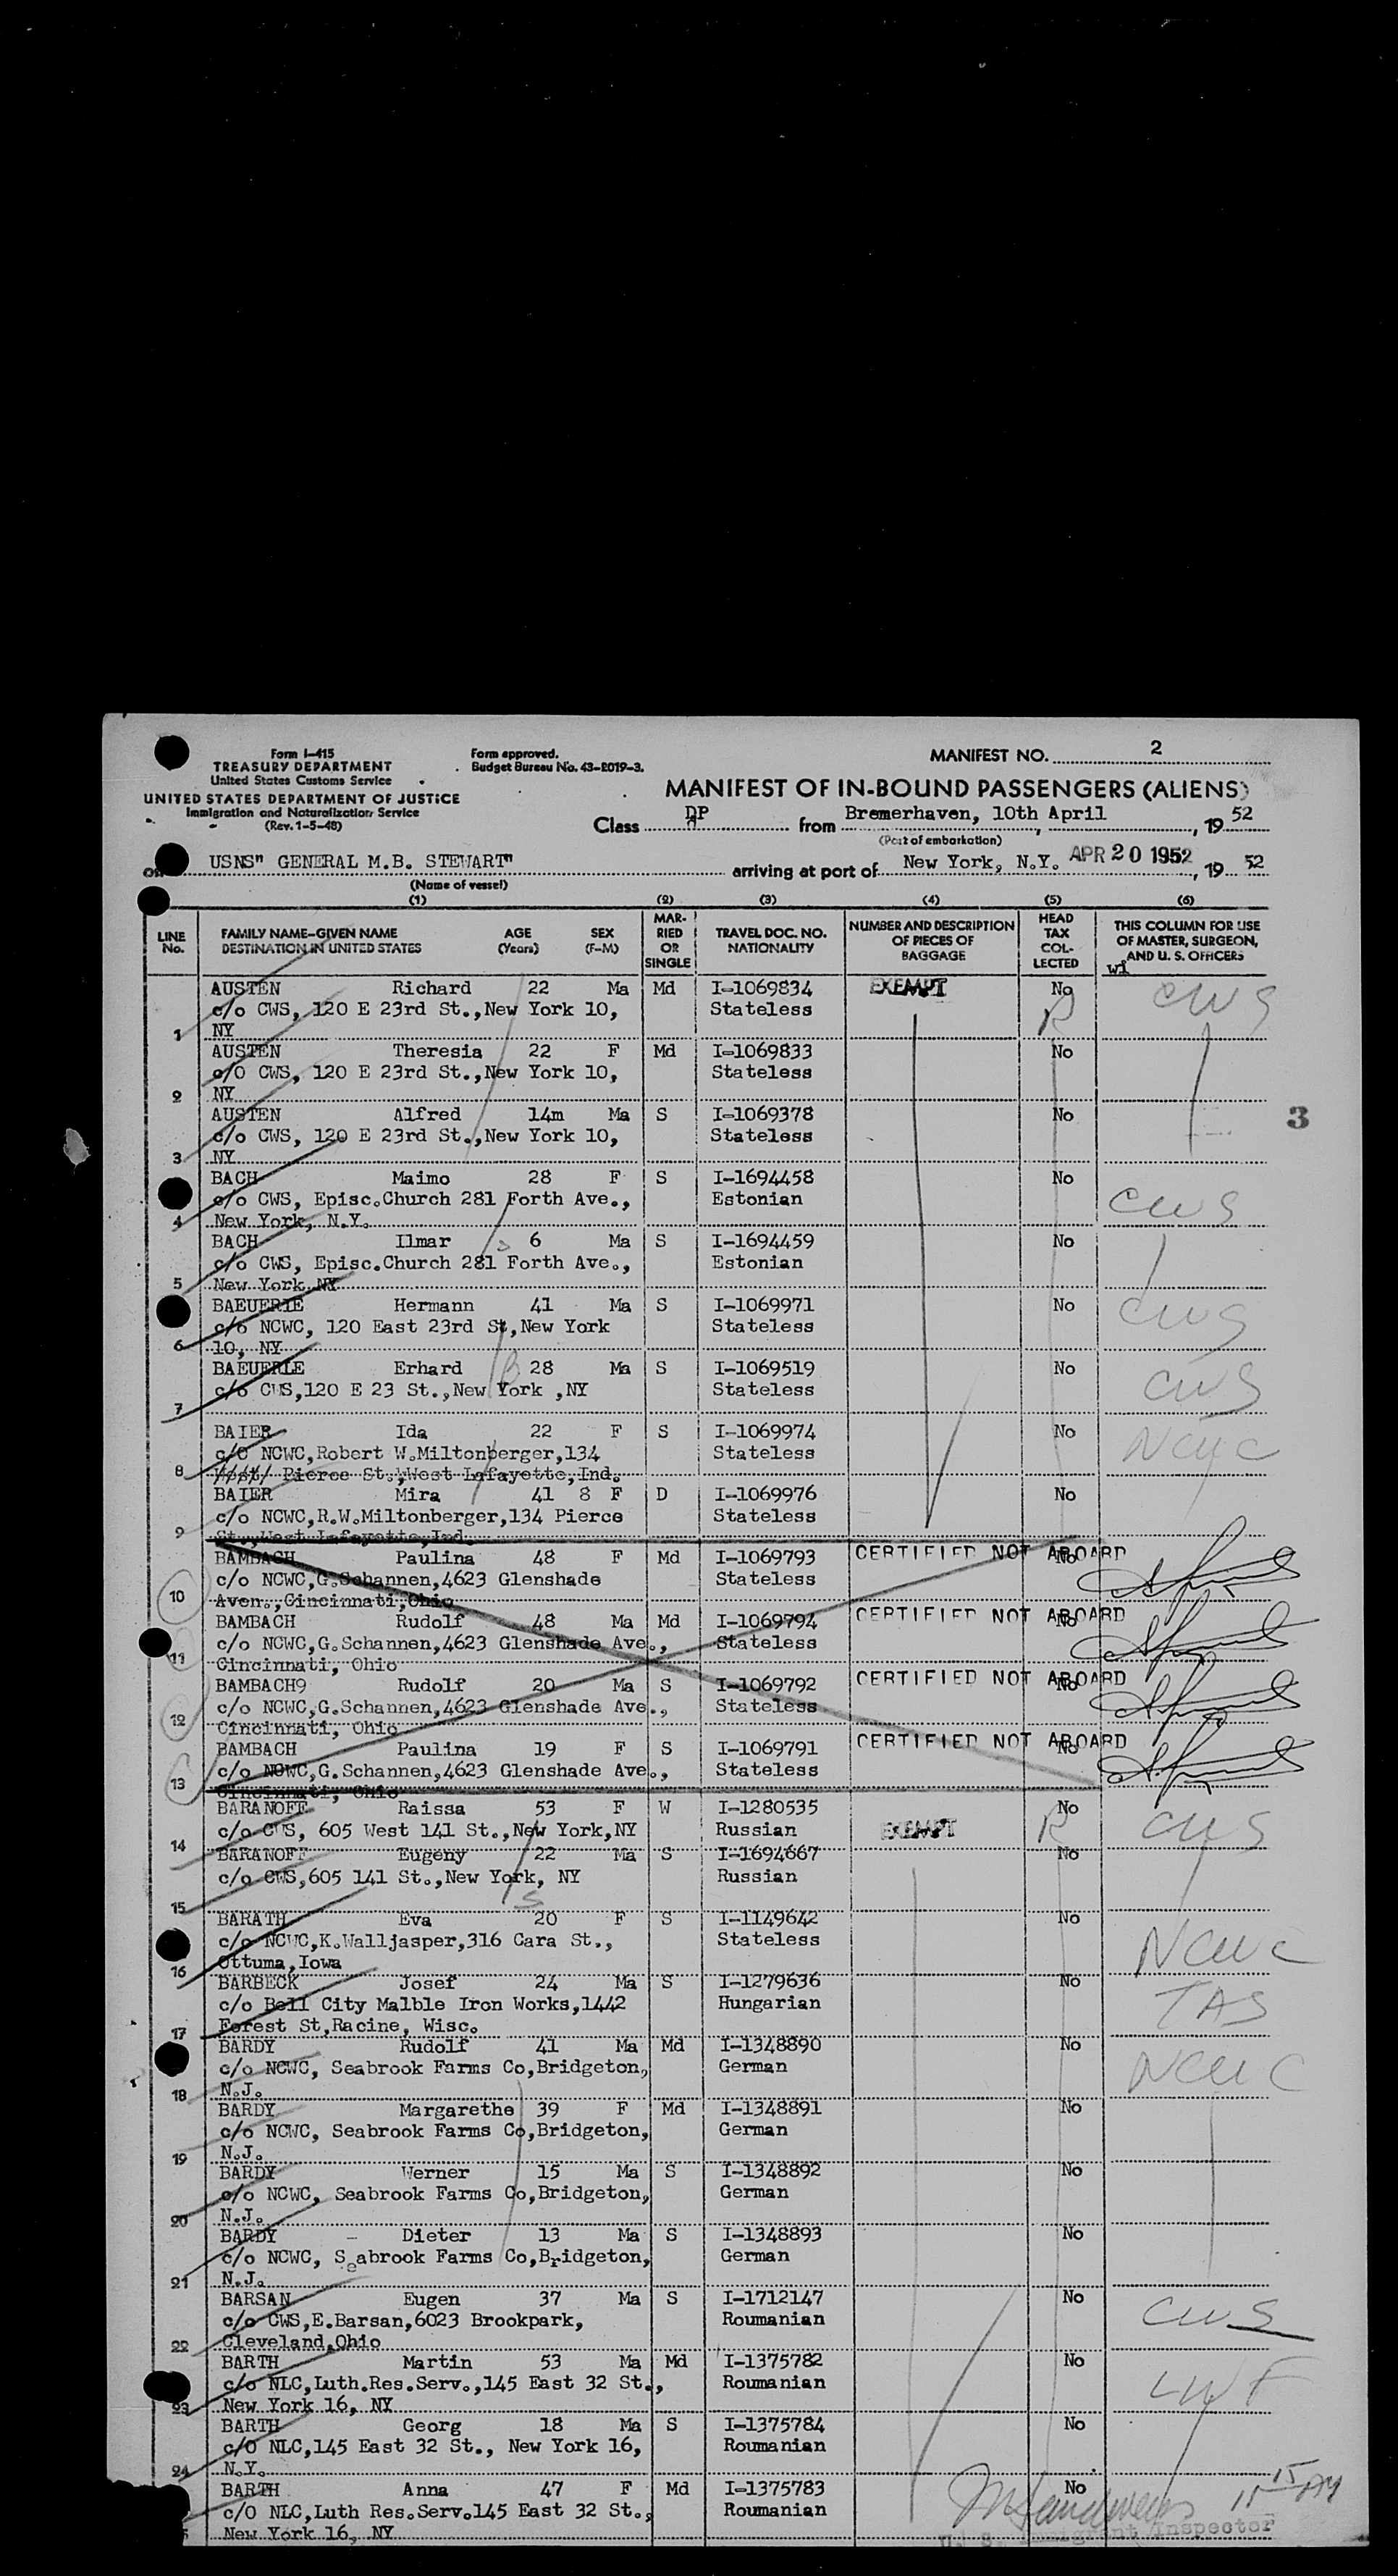 Form I-415
TREASURY DEPARTMENT
United States Customs Service
UNITED STATES DEPARTMENT OF JUSTICE
Immigration and Naturalization Service
(Rev. 1-5-48)
Form approved.
Budget Bureau No. 43-R019-3.
MANIFEST NO. 2
MANIFEST OF IN-BOUND PASSENGERS (ALIENS)
Class DP from Bremerhaven, 10th April, 19 52
(Port of embarkation)
on USNS" GENERAL M.B. STEWART" arriving at port of New York, N.Y. APR 20 1952, 19 52
(Name of vessel)
(1) (2) (3) (4) (5) (6)
LINE No. FAMILY NAME–GIVEN NAME DESTINATION IN UNITED STATES AGE (Years) SEX (F–M) MARRIED OR SINGLE TRAVEL DOC. NO. NATIONALITY NUMBER AND DESCRIPTION OF PIECES OF BAGGAGE HEAD TAX COLLECTED THIS COLUMN FOR USE OF MASTER, SURGEON, AND U. S. OFFICERS
AUSTEN Richard 22 Ma Md I-1069834 EXEMPT No CWS
c/o CWS, 120 E 23rd St.,New York 10, Stateless R
1 NY
AUSTEN Theresia 22 F Md I-1069833 No
c/o CWS, 120 E 23rd St.,New York 10, Stateless
2 NY
AUSTEN Alfred 14m Ma S I-1069378 No 3
c/o CWS, 120 E 23rd St.,New York 10, Stateless
3 NY
BACH Maimo 28 F S I-1694458 No
c/o CWS, Episc.Church 281 Forth Ave., Estonian CWS
4 New York, N.Y.
BACH Ilmar 6 Ma S I-1694459 No
c/o CWS, Episc.Church 281 Forth Ave., Estonian
5 New York NY
BAEUERIE Hermann 41 Ma S I-1069971 No CWS
c/o NCWC, 120 East 23rd St,New York Stateless
6 10, NY
BAEUERLE Erhard 28 Ma S I-1069519 No
c/o CWS,120 E 23 St.,New York ,NY Stateless CWS
7
BAIER Ida 22 F S I-1069974 No NCWC
c/o NCWC,Robert W.Miltonberger,134 Stateless
8 Pierce St.,West Lafayette,Ind.
BAIER Mira 41 8 F D I-1069976 No
c/o NCWC,R.W.Miltonberger,134 Pierce Stateless
9 St.,West Lafayette,Ind.
BAMBACH Paulina 48 F Md I-1069793 CERTIFIED NOT ABOARD No
c/o NCWC,G.Schannen,4623 Glenshade Stateless
10 Aven.,Cincinnati,Ohio
BAMBACH Rudolf 48 Ma Md I-1069794 CERTIFIED NOT ABOARD No
c/o NCWC,G.Schannen,4623 Glenshade Ave., Stateless
11 Cincinnati, Ohio
BAMBACH9 Rudolf 20 Ma S I-1069792 CERTIFIED NOT ABOARD No
c/o NCWC,G.Schannen,4623 Glenshade Ave., Stateless
12 Cincinnati, Ohio
BAMBACH Paulina 19 F S I-1069791 CERTIFIED NOT ABOARD No
c/o NCWC,G.Schannen,4623 Glenshade Ave., Stateless
13 Cincinnati, Ohio
BARANOFF Raissa 53 F W I-1280535 No
c/o CWS, 605 West 141 St.,New York,NY Russian EXEMPT R CWS
14
BARANOFF Eugeny 22 Ma S I-1694667 No
c/o CWS,605 141 St.,New York, NY Russian
15
BARATH Eva 20 F S I-1149642 No
c/o NCWC,K.Walljasper,316 Cara St., Stateless NCWC
16 Ottuma,Iowa
BARBECK Josef 24 Ma S I-1279636 No
c/o Bell City Malble Iron Works,1442 Hungarian TAS
17 Forest St,Racine, Wisc.
BARDY Rudolf 41 Ma Md I-1348890 No
c/o NCWC, Seabrook Farms Co,Bridgeton, German NCWC
18 N.J.
BARDY Margarethe 39 F Md I-1348891 No
c/o NCWC, Seabrook Farms Co,Bridgeton, German
19 N.J.
BARDY Werner 15 Ma S I-1348892 No
c/o NCWC, Seabrook Farms Co,Bridgeton, German
20 N.J.
BARDY Dieter 13 Ma S I-1348893 No
c/o NCWC, Seabrook Farms Co,Bridgeton, German
21 N.J.
BARSAN Eugen 37 Ma S I-1712147 No
c/o CWS,E.Barsan,6023 Brookpark, Roumanian CWS
22 Cleveland,Ohio
BARTH Martin 53 Ma Md I-1375782 No
c/o NLC,Luth.Res.Serv.,145 East 32 St., Roumanian LWF
23 New York 16, NY
BARTH Georg 18 Ma S I-1375784 No
c/O NLC,145 East 32 St., New York 16, Roumanian
24 N.Y.
BARTH Anna 47 F Md I-1375783 No
c/O NLC,Luth Res.Serv.145 East 32 St., Roumanian
New York 16, NY U. S. Immigrant Inspector